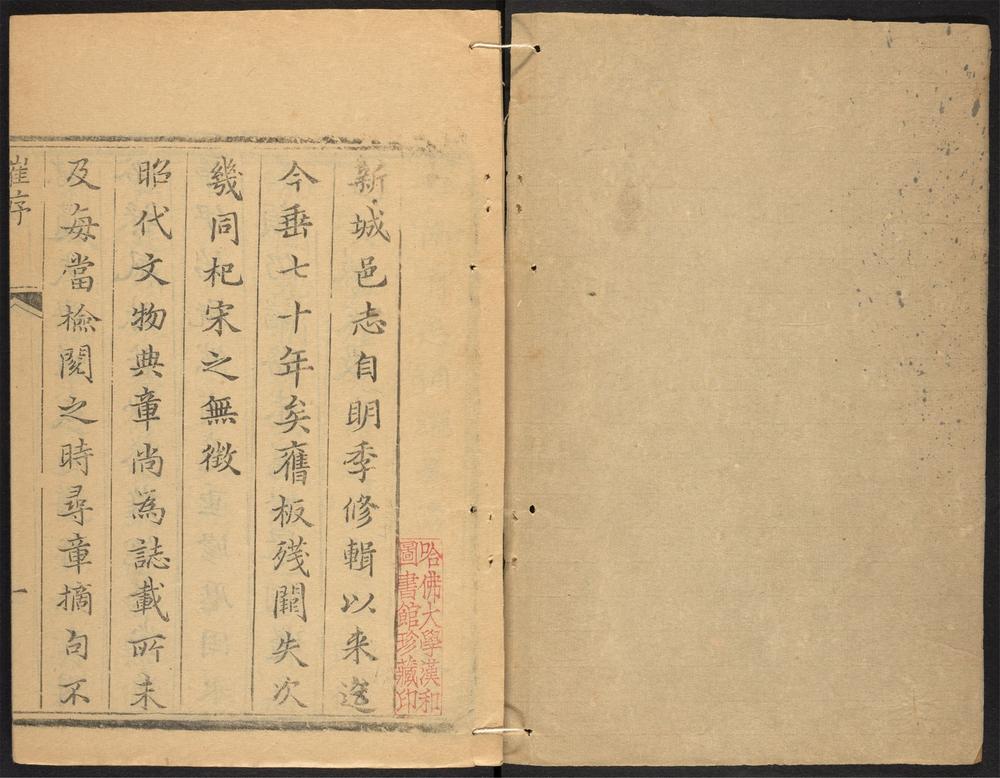 新城邑志自明季修輯以来迄
今垂七十年矣舊板殘闕失次
幾同杞宋之無徴
昭代文物典章尚為誌載所未
及每當檢閱之時尋章摘句不
崔序
一
哈佛大學漢和
圖書館珍藏印